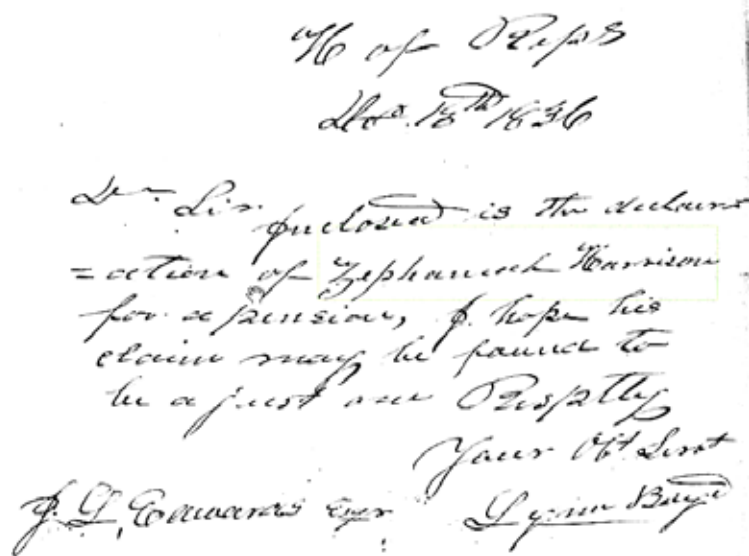 H of Reps
Decr. 18th 1836
Dr Sir.
Inclosed is the declara
=ation of Zephaniah Harrison
for a pension, I hope his
claim may be found to
be a just one Resptly
Your Obt Servt
Lynn Boyd
J. L. Edwards Esqr